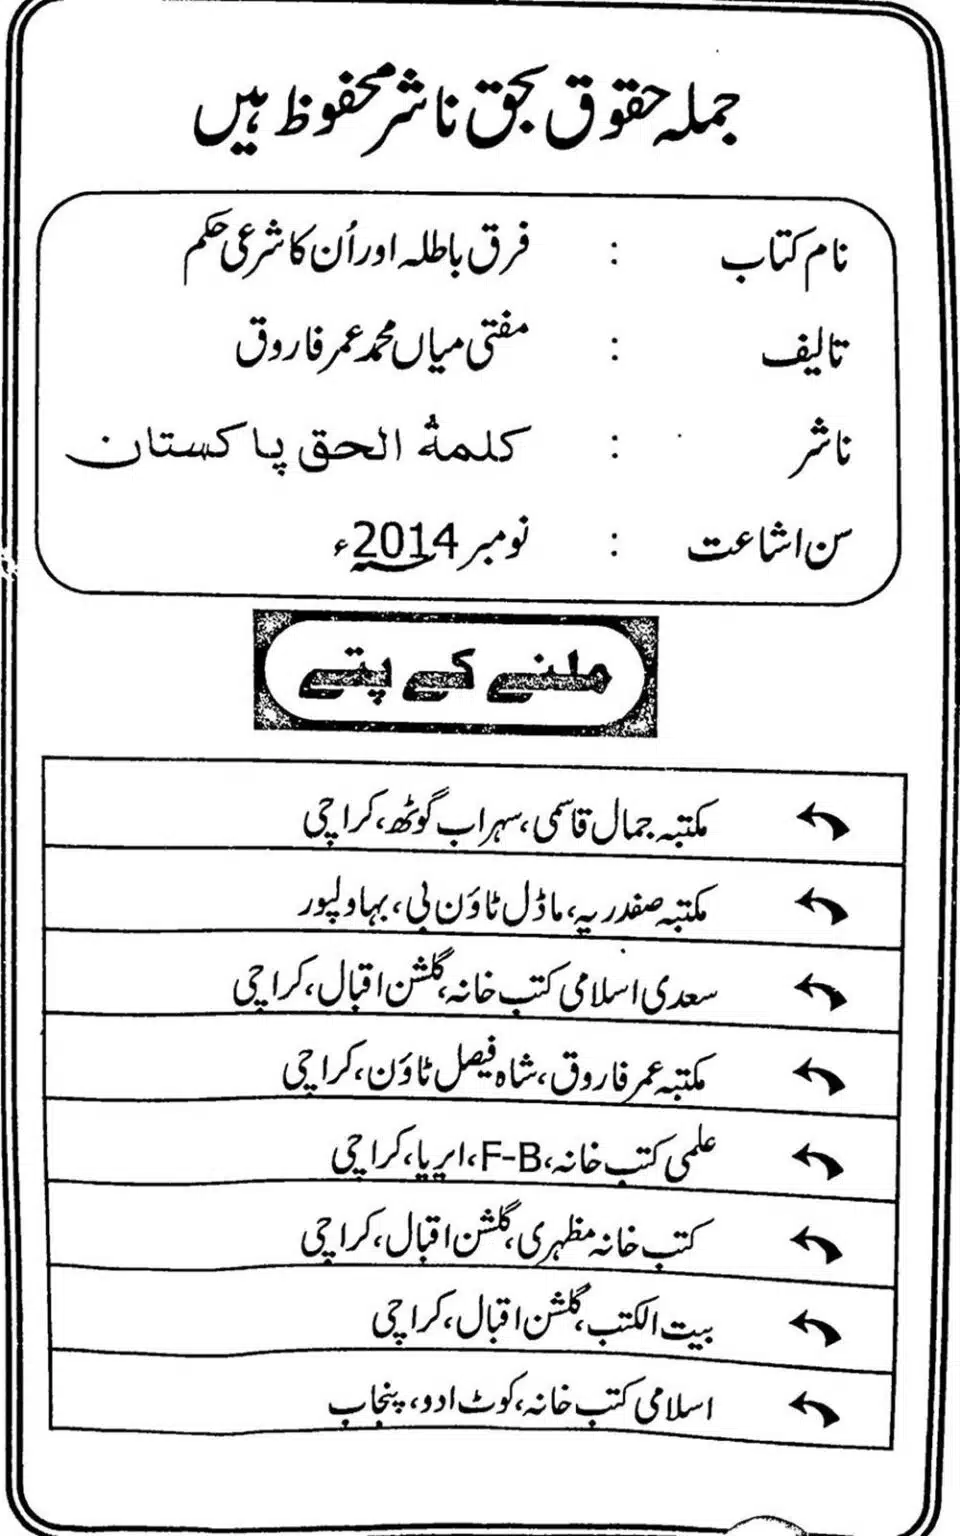 جملہ حقوق بحق ناشر محفوظ ہیں
نام کتاب : فرق باطلہ اور اُن کا شرعی حکم
تالیف : مفتی میاں محمد عمر فاروق
ناشر : کلمۃ الحق پاکستان
سن اشاعت : نومبر 2014ء
ملنے کے پتے
مکتبہ جمال قاسمی، سہراب گوٹھ، کراچی
مکتبہ صفدریہ، ماڈل ٹاؤن بی، بہاولپور
سعدی اسلامی کتب خانہ، گلشن اقبال، کراچی
مکتبہ عمر فاروق، شاہ فیصل ٹاؤن، کراچی
علمی کتب خانہ، F-B، ایریا، کراچی
کتب خانہ مظہری، گلشن اقبال، کراچی
بیت الکتب، گلشن اقبال، کراچی
اسلامی کتب خانہ، کوٹ ادو، پنجاب